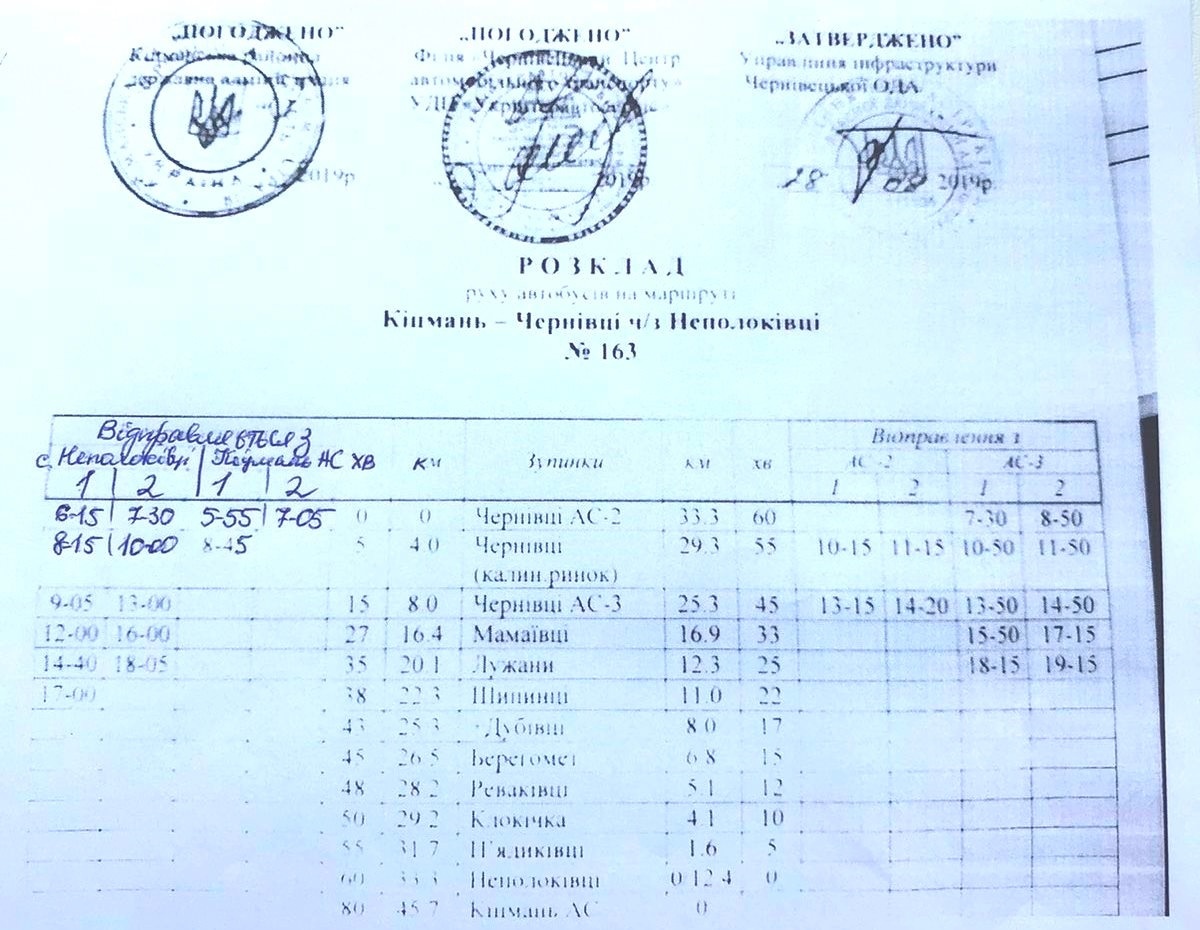 „ПОГОДЖЕНО" „ПОГОДЖЕНО" „ЗАТВЕРДЖЕНО"
районна Філія Центр Управління інфраструктури
державна автомобільного транспорту» Чернівецької ОДА
2019р. 2019р. 28 08 2019р.
УКРАЇНА
РОЗКЛАД
руху автобусів на маршруті
Кіцмань – Чернівці ч/з Неполоківці
№ 163
Відправляється з Відправлення з
с. Неполоківці Кіцмань АС хв км Зупинки км хв АС-2 АС-3
1 2 1 2 1 2 1 2
6-15 7-30 5-55 7-05 0 0 Чернівці АС-2 33.3 60 7-30 8-50
8-15 10-00 8-45 5 4.0 Чернівці 29.3 55 10-15 11-15 10-50 11-50
(калин.ринок)
9-05 13-00 15 8.0 Чернівці АС-3 25.3 45 13-15 14-20 13-50 14-50
12-00 16-00 27 16.4 Мамаївці 16.9 33 15-50 17-15
14-40 18-05 35 20.1 Лужани 12.3 25 18-15 19-15
17-00 38 22.3 Шипинці 11.0 22
43 25.3 Дубівці 8.0 17
45 26.5 Берегомет 6.8 15
48 28.2 Реваківці 5.1 12
50 29.2 Клокічка 4.1 10
55 31.7 П'ядиківці 1.6 5
60 33.3 Неполоківці 0/12.4 0
80 45.7 Кіцмань АС 0